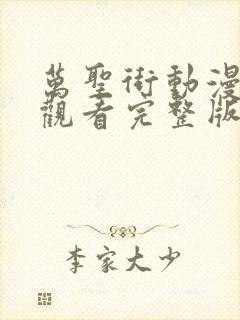 萬聖街動漫
觀看完整版
李家大少